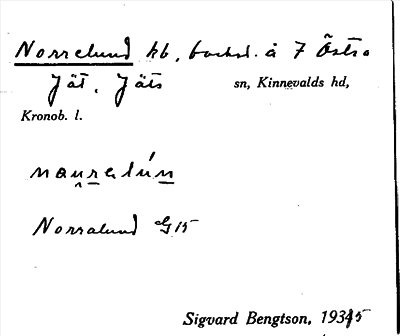 Norrelund hb, backst. å 7 Östra
Jät, Jäts sn, Kinnevalds hd,
Kronob. l.
naųrelún
Norralund G 15
Sigvard Bengtson, 1935